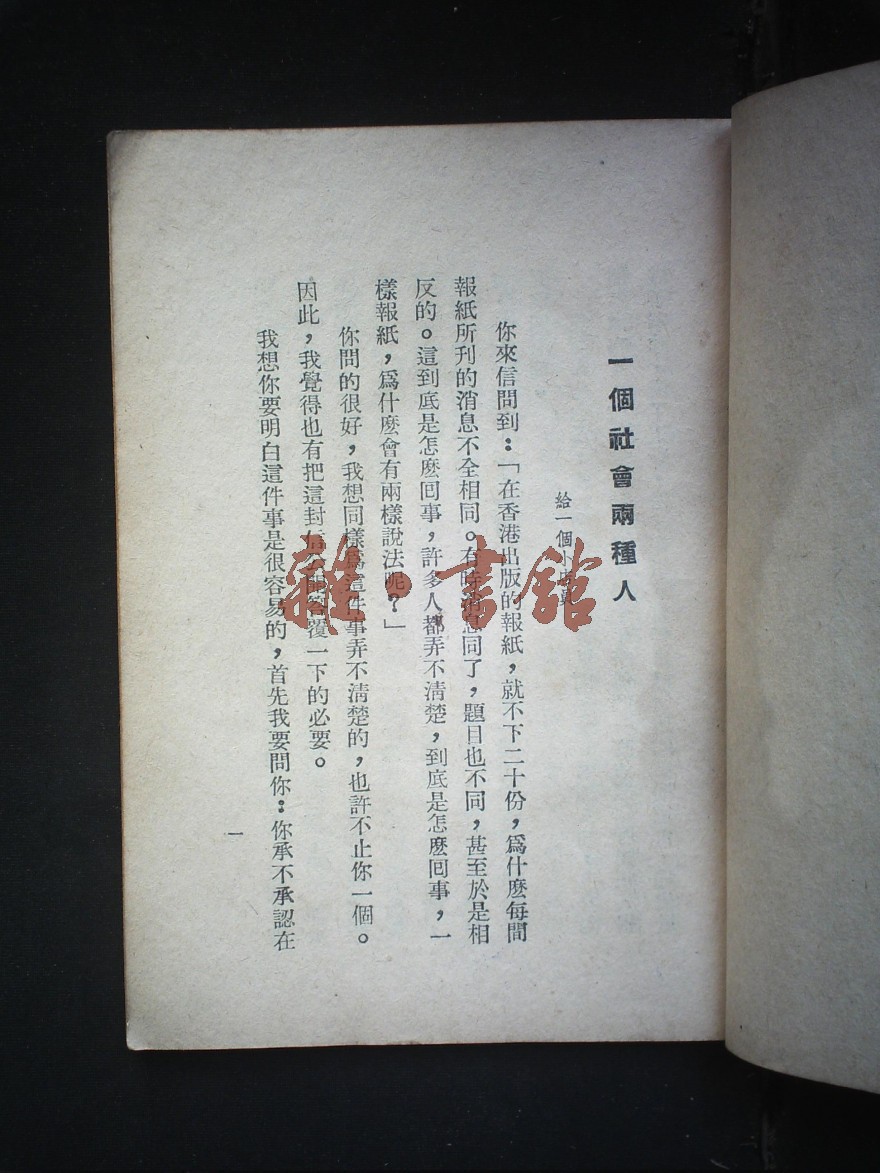 一個社會兩種人
給一個卜
你來信問到：「在香港出版的報紙，就不下二十份，爲什麽每間
報紙所刊的消息不全相同。有時消息同了，題目也不同，甚至於是相
反的。這到底是怎麽回事，許多人都弄不淸楚，到底是怎麽回事，一
樣報紙，爲什麽會有兩樣說法呢？」
你問的很好，我想同樣爲這件事弄不淸楚的，也許不止你一個。
因此，我覺得也有把這封信公開答覆一下的必要。
我想你要明白這件事是很容易的，首先我要問你：你承不承認在
一
雜·書館